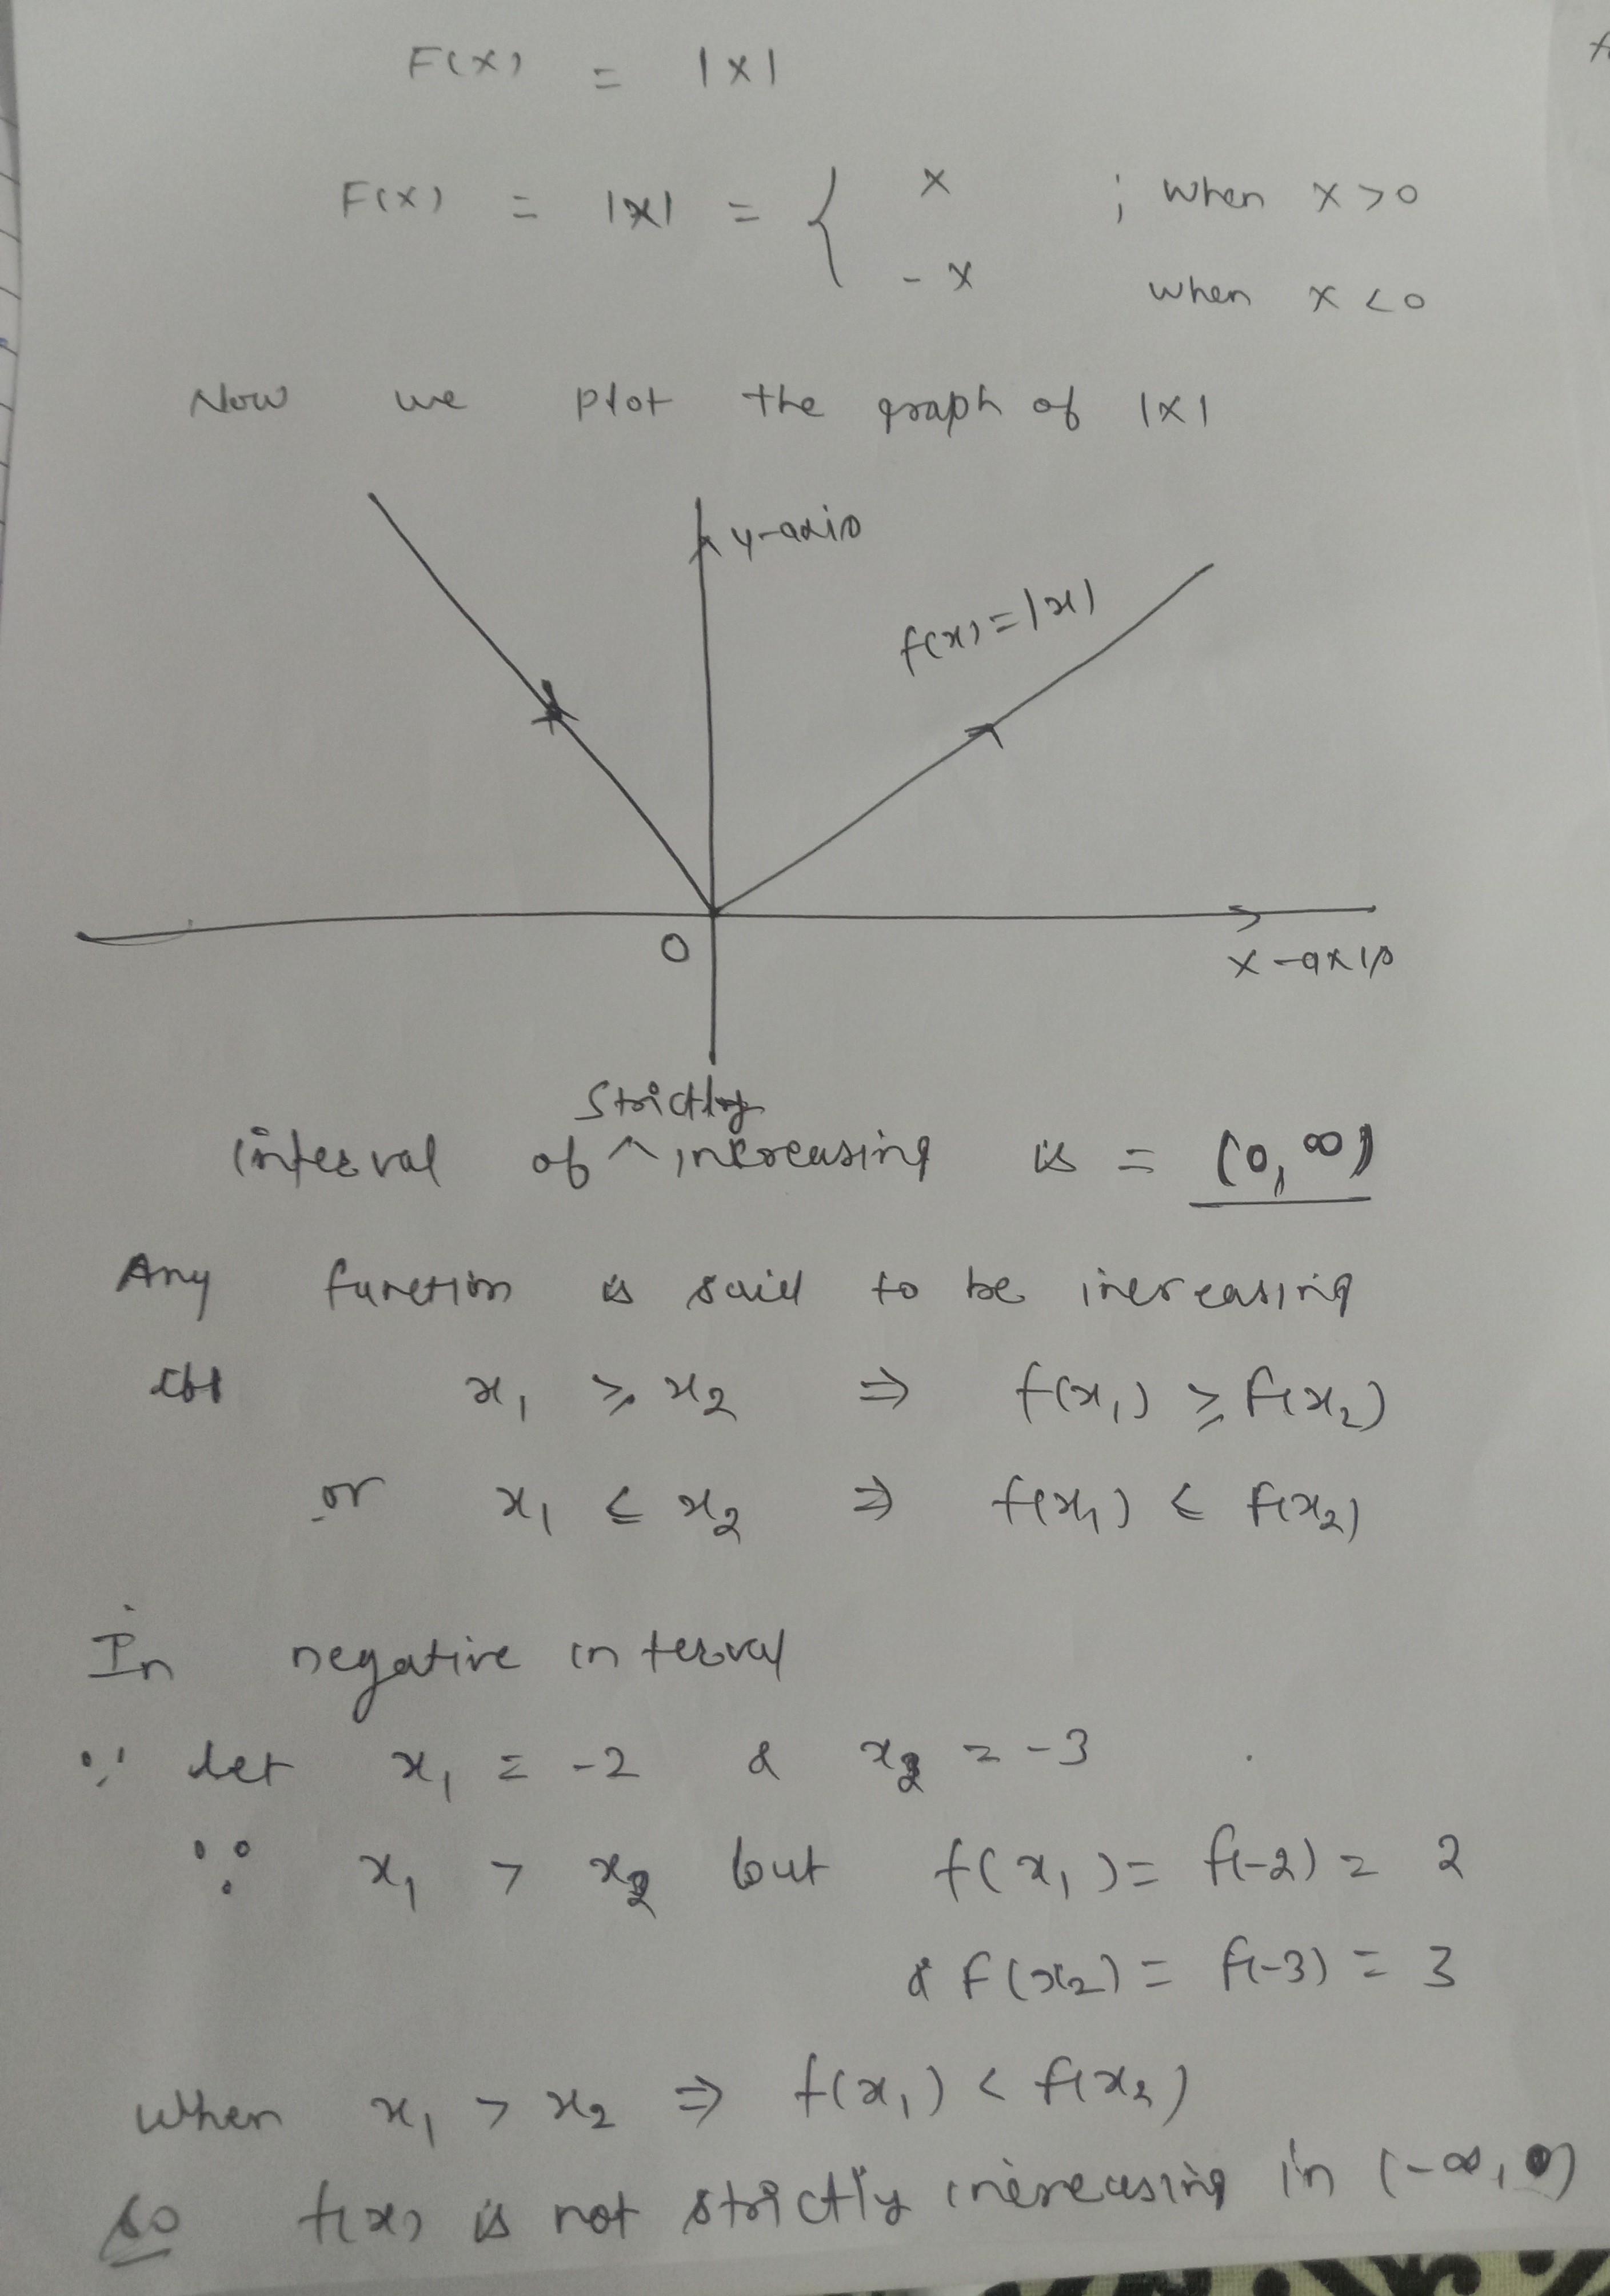 F(x) = |x|
F(x) = |x| = { x ; when x > 0
- x when x < 0
Now we plot the graph of |x|
y-axis
f(x) = |x|
O
x-axis
Strictly
interval of ^ increasing is = (0, ∞)
Any function is said to be increasing
x₁ ≥ x₂ ⇒ f(x₁) ≥ f(x₂)
or x₁ ≤ x₂ ⇒ f(x₁) ≤ f(x₂)
In negative interval
∵ let x₁ = -2 & x₂ = -3
∵ x₁ > x₂ but f(x₁) = f(-2) = 2
& f(x₂) = f(-3) = 3
when x₁ > x₂ ⇒ f(x₁) < f(x₂)
so f(x) is not strictly increasing in (-∞, 0)